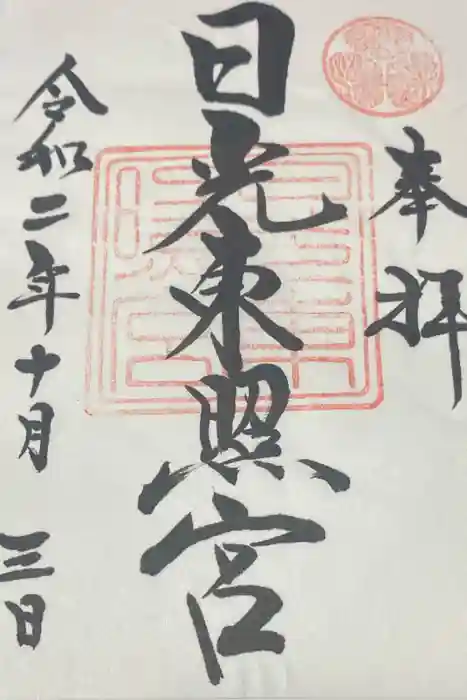 奉拝
日光東照宮
令和二年十月三日